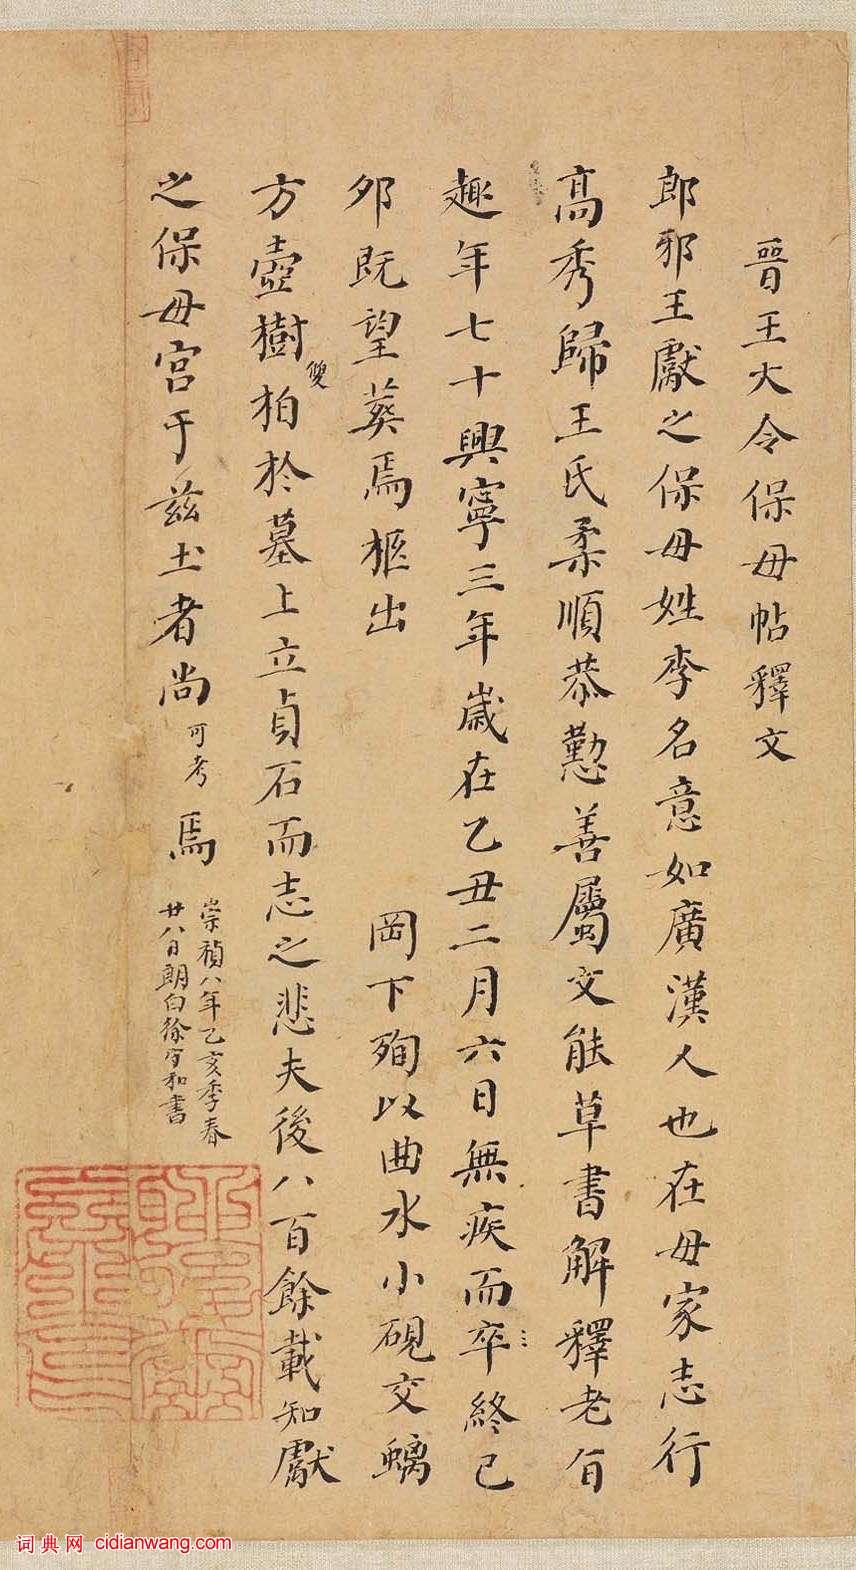 晉王大令保母帖釋文
郎邪王獻之保母姓李名意如廣漢人也在母家志行
高秀歸王氏柔順恭懃善屬文能草書解釋老旨
趣年七十興寧三年歲在乙丑二月六日無疾而卒終已
夘既望葬焉柩出 岡下殉以曲水小硯交螭
方壺樹雙柏於墓上立貞石而志之悲夫後八百餘載知獻
之保母宮于茲土者尚可考焉
崇禎八年乙亥季春
廿八日朗白徐守和書
词典网 cidianwang.com